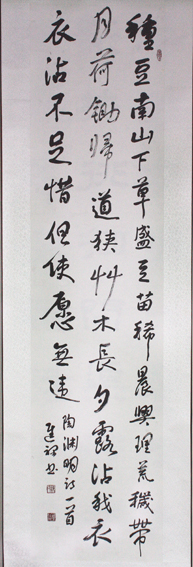 種豆南山下草盛豆苗稀晨興理荒穢帶
月荷鋤歸道狹艸木長夕露沾我衣
衣沾不足惜但使愿無違
陶淵明詩一首